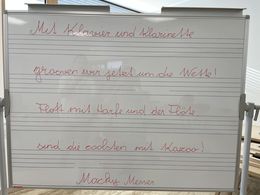 Mit Klavier und Klarinette
grooven wir jetzt um die Wette!
Flott mit Harfe und der Flöte
sind die coolsten mit Kazoo!
Macky Messer